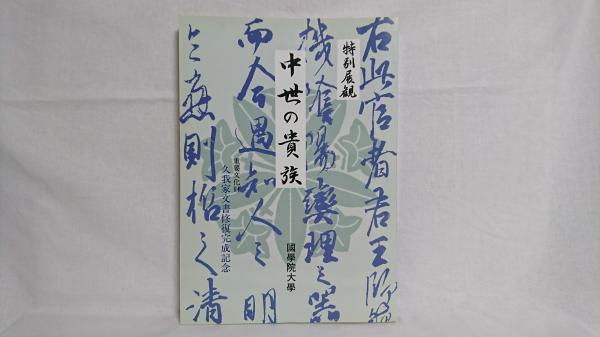 特別展観
中世の貴族
重要文化財
久我家文書修復完成記念
國學院大學
右此官者君王臨
機
陽燮理之器
而合遇知人之明
則哲之清